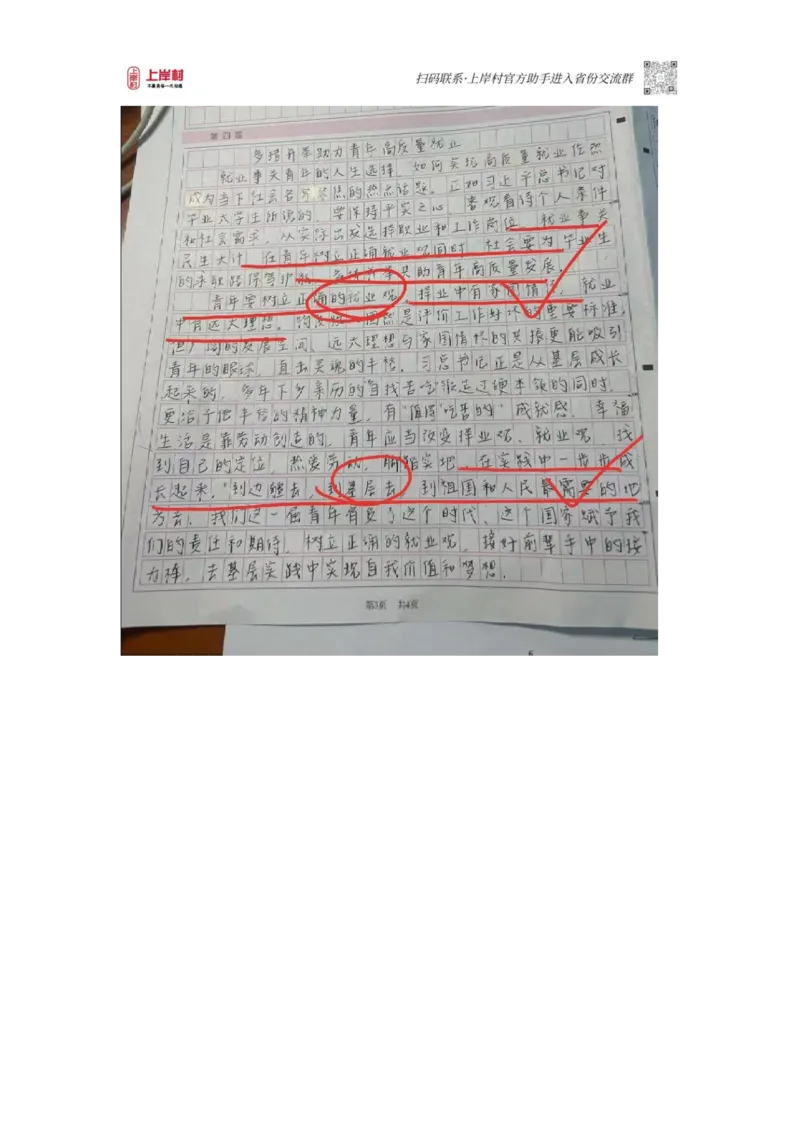 上岸村
上岸村
不辜负每一代知遇
扫码联系·上岸村官方助手进入省份交流群
第四篇
多措并举助力青年高质量就业
就业事关青年的人生选择，如何实现高质量就业依然
成为当下社会各界关注的热点话题。正如习近平总书记对
毕业大学生所说的，要保持平实之心，客观看待个人条件
和社会需求，从实际出发选择职业和工作岗位。就业事关
民生大计，在青年树立正确就业观同时，社会要为毕业生
的求职路保驾护航，多措并举共助青年高质量发展。
青年要树立正确的就业观，择业中有家国情怀，就业
中有远大理想。是评价工作好坏的重要标准，
但广阔的发展空间、远大理想与家国情怀的共振更能吸引
青年的眼球，直击灵魂的丰裕。习总书记正是从基层成长
起来的，多年下乡亲历的"自找苦吃"淬炼过硬本领的同时，
更给予他丰裕的精神力量，有"值得"吃苦的"成就感。幸福
生活是靠劳动创造的，青年应当改变择业观、就业观，找
到自己的定位，热爱劳动，脚踏实地，在实践中一步步成
长起来。"到边疆去，到基层去，到祖国和人民最需要的地
方去，我们这一届青年肩负了这个时代、这个国家赋予我
们的责任和期待，树立正确的就业观，接好前辈手中的接
力棒，去基层实践中实现自我价值和梦想。
第3页 共4页